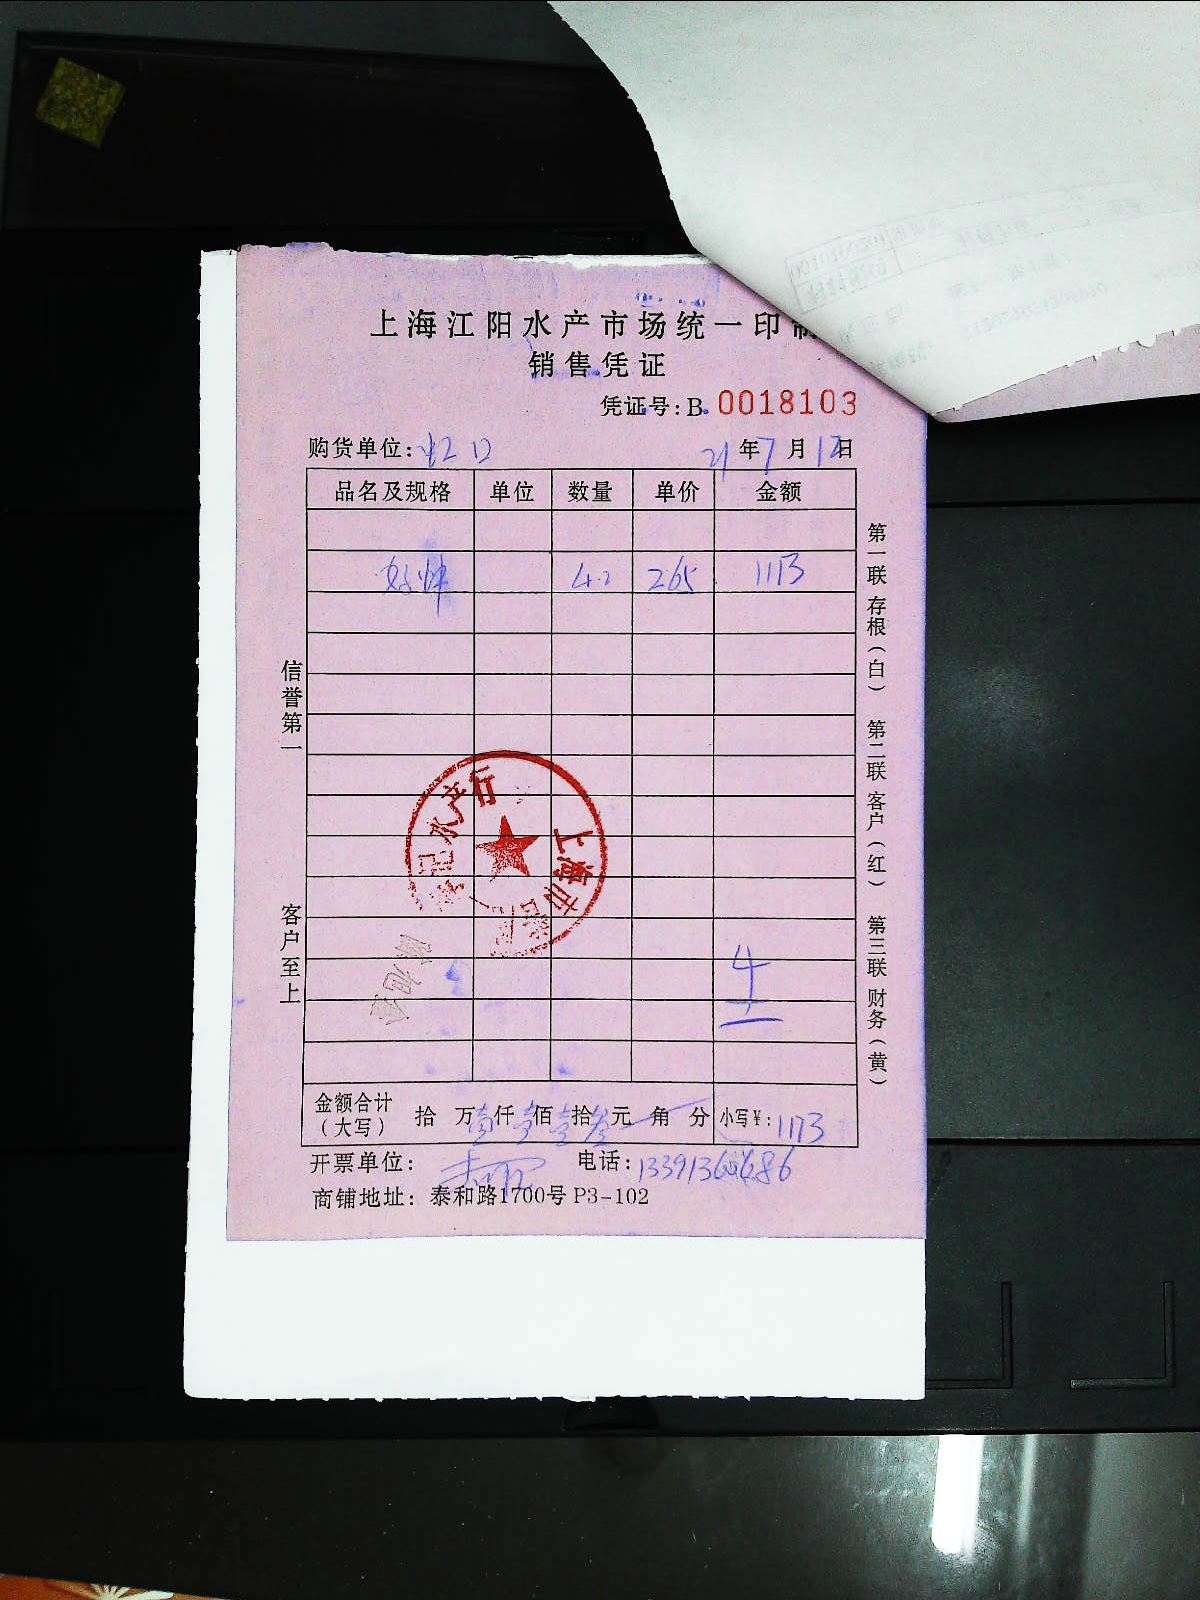 上海江阳水产市场统一印制
销售凭证
凭证号: B. 0018103
购货单位: 虹口 21年7月12日
品名及规格 单位 数量 单价 金额
4.2 265 1113
信誉第一
客户至上
第一联 存根（白） 第二联 客户（红） 第三联 财务（黄）
上海市 水产行
金额合计（大写） 拾 万壹仟壹佰壹拾叁元 角 分 小写¥: 1113
开票单位: 电话: 13391366686
商铺地址: 泰和路1700号 P3-102